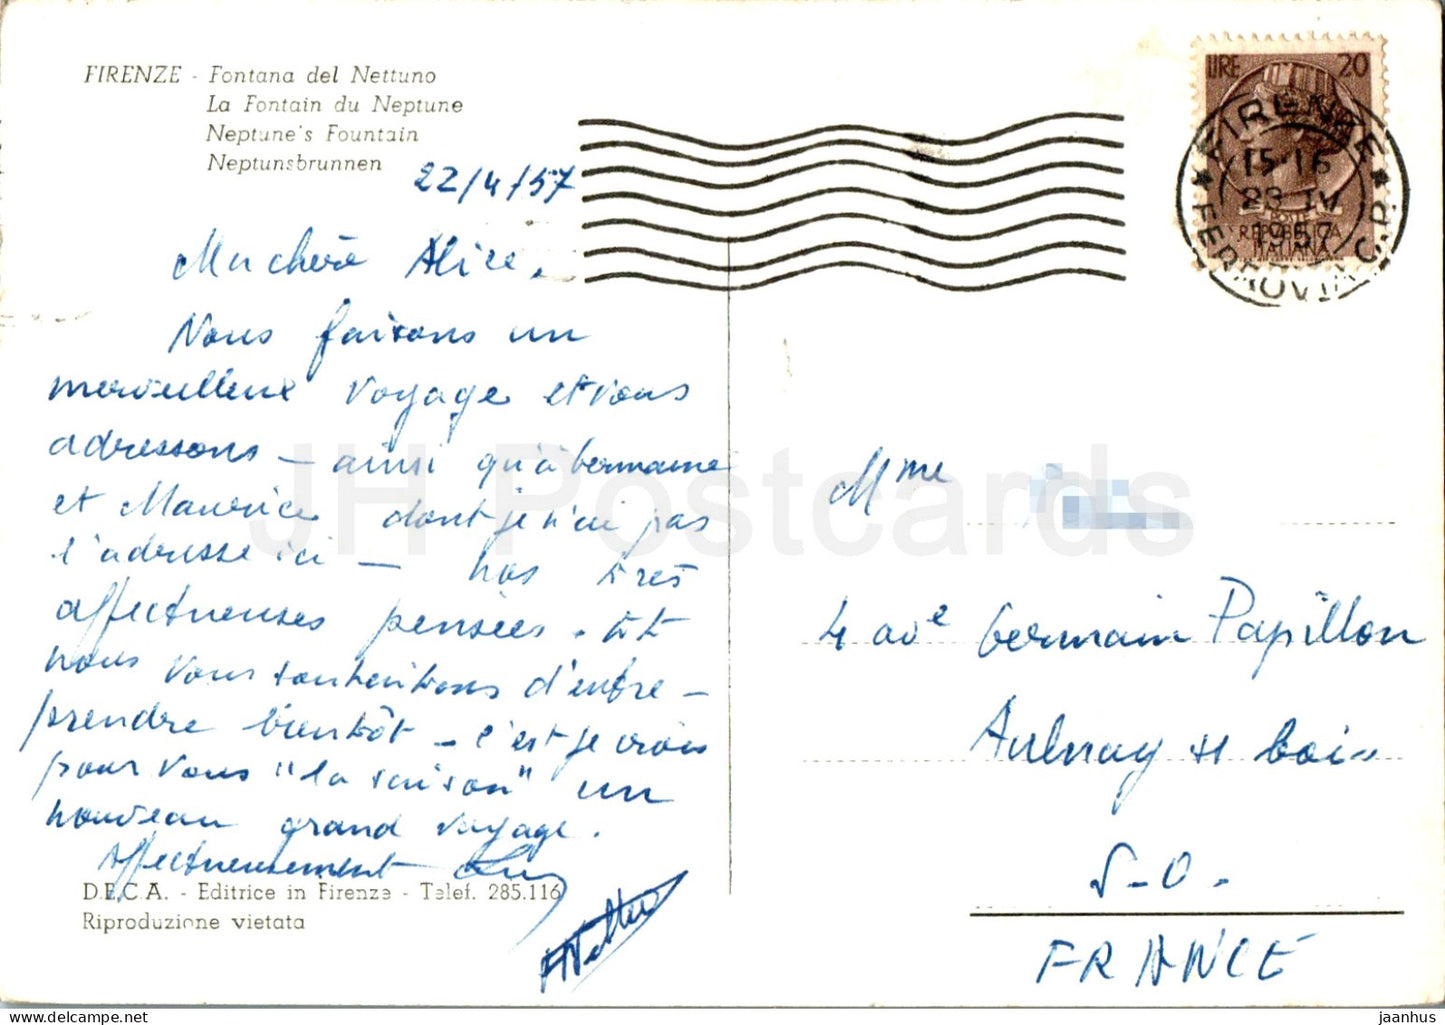 FIRENZE - Fontana del Nettuno
La Fontain du Neptune
Neptune's Fountain
Neptunsbrunnen
22/4/57
Ma chère Alice,
Nous faisons un
merveilleux voyage et vous
adressons - ainsi qu'à Germaine
et Maurice dont je n'ai pas
l'adresse ici - nos très
affectueuses pensées. Et
nous vous souhaitons d'entre-
prendre bientôt - c'est je crois
pour vous "la saison" un
nouveau grand voyage.
Affectueusement
D.E.C.A. - Editrice in Firenze - Telef. 285.116
Riproduzione vietata
LIRE 20
POSTE
REPUBBLICA
ITALIANA
FIRENZE
15-16
23 IV
1957
* FERROVIA C.P. *
Mme
4 ave Germain Papillon
Aulnay s/ bois
S-O.
FRANCE
JH Postcards
jaanhus
delcampe.net